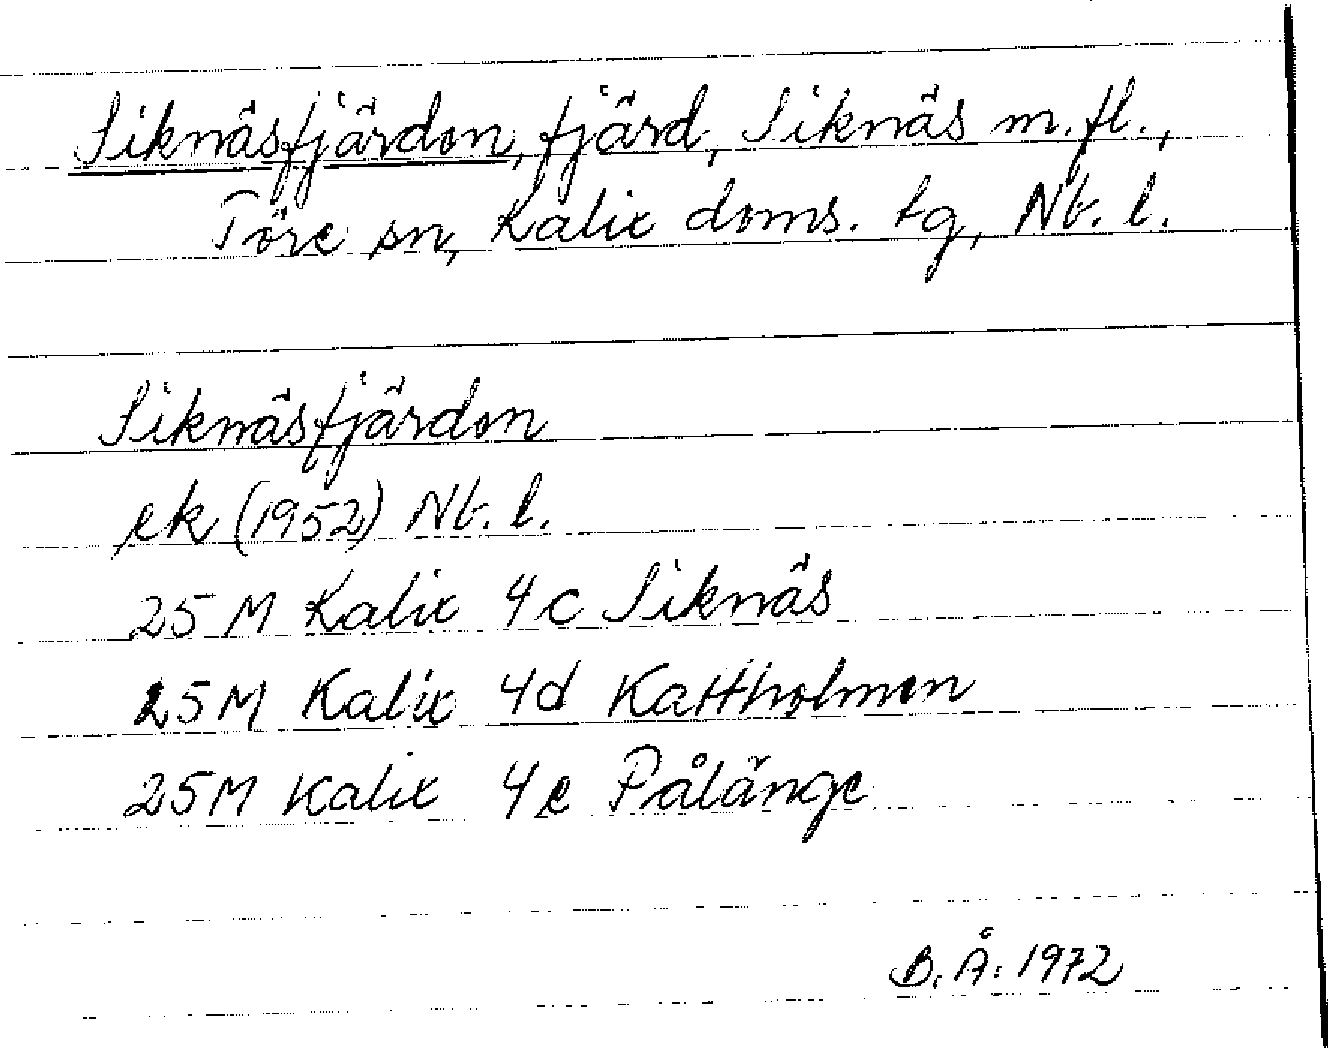 Siknäsfjärden, fjärd, Siknäs m.fl.,
Töre sn, Kalix doms. tg, Nb. l.
Siknäsfjärden
ek (1952) Nb. l.
25 M Kalix 4c Siknäs
25 M Kalix 4d Kattholmen
25 M Kalix 4e Pålänge
B. Å. 1972